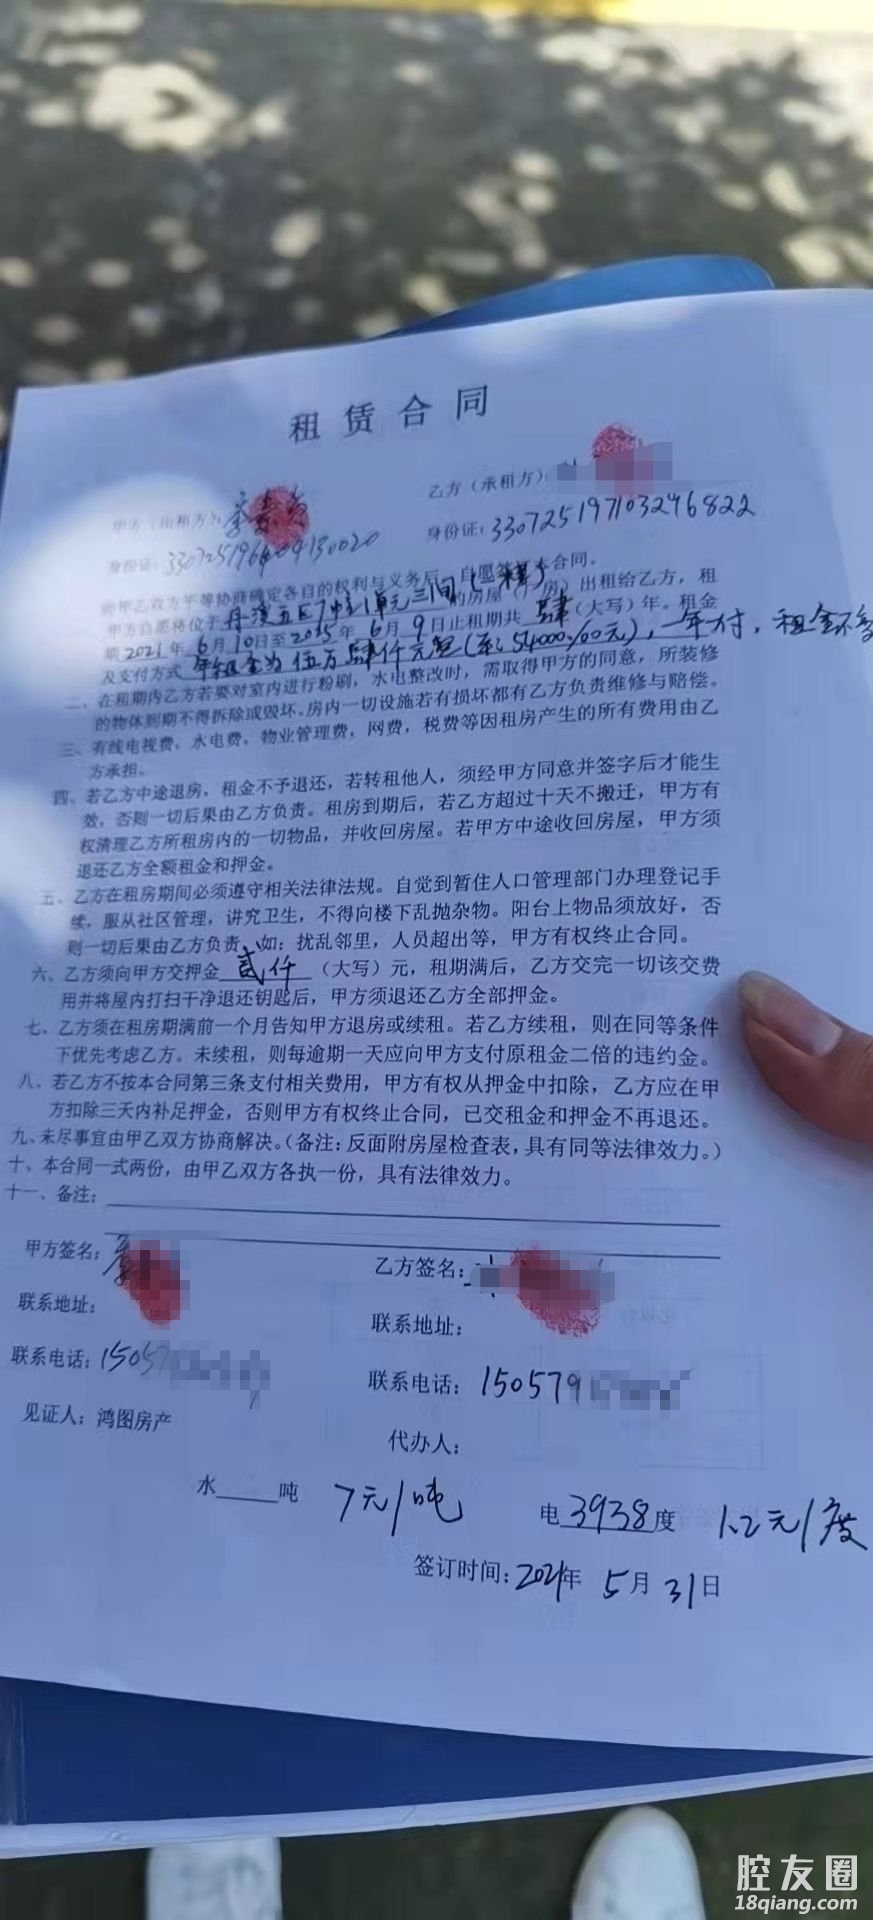 租赁合同
甲方（出租方）：
乙方（承租方）：
身份证：330725197103246822
身份证：
经甲乙双方平等协商确定各自的权利与义务后，自愿签订本合同。
甲方自愿将位于丹溪五区7幢1单元三间 的房屋 出租给乙方，租
期2021年6月10日至2025年6月9日止租期共肆（大写）年。租金
及支付方式年租金为伍万肆仟元整 54000.00元），一年一付，租金不
二、在租期内乙方若要对室内进行粉刷，水电整改时，需取得甲方的同意，所装修
的物体到期不得拆除或毁坏。房内一切设施若有损坏都有乙方负责维修与赔偿。
三、有线电视费，水电费，物业管理费，网费，税费等因租房产生的所有费用由乙
方承担。
四、若乙方中途退房，租金不予退还，若转租他人，须经甲方同意并签字后才能生
效，否则一切后果由乙方负责。租房到期后，若乙方超过十天不搬迁，甲方有
权清理乙方所租房内的一切物品，并收回房屋。若甲方中途收回房屋，甲方须
退还乙方全额租金和押金。
五、乙方在租房期间必须遵守相关法律法规。自觉到暂住人口管理部门办理登记手
续，服从社区管理，讲究卫生，不得向楼下乱抛杂物。阳台上物品须放好，否
则一切后果由乙方负责，如：扰乱邻里，人员超出等，甲方有权终止合同。
六、乙方须向甲方交押金贰仟（大写）元，租期满后，乙方交完一切该交费
用并将屋内打扫干净退还钥匙后，甲方须退还乙方全部押金。
七、乙方须在租房期满前一个月告知甲方退房或续租。若乙方续租，则在同等条件
下优先考虑乙方。未续租，则每逾期一天应向甲方支付原租金二倍的违约金。
八、若乙方不按本合同第三条支付相关费用，甲方有权从押金中扣除，乙方应在甲
方扣除三天内补足押金，否则甲方有权终止合同，已交租金和押金不再退还。
九、未尽事宜由甲乙双方协商解决。（备注：反面附房屋检查表，具有同等法律效力。）
十、本合同一式两份，由甲乙双方各执一份，具有法律效力。
十一、备注：
甲方签名：
乙方签名：
联系地址：
联系地址：
联系电话：15057
联系电话：1505791
见证人：鸿图房产
代办人：
水 吨 7元/吨 电3938度 1.2元/度
签订时间：2021年5月31日
腔友圈
18qiang.com